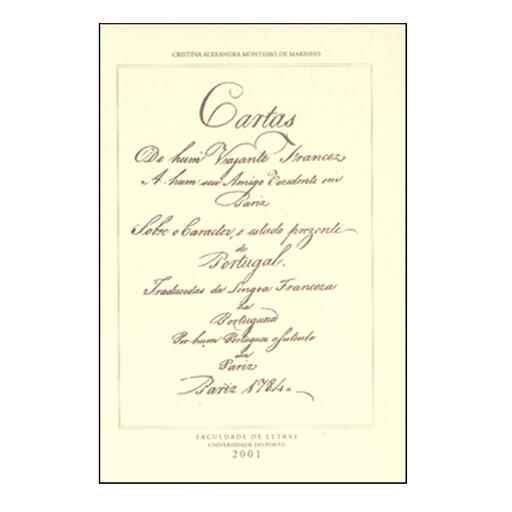 CRISTINA ALEXANDRA MONTEIRO DE MARINHO
Cartas
De hum Viajante Francez
A hum seu Amigo Rezidente em
Pariz
Sobre o Caracter, e estado prezente
de
Portugal.
Traduzidas da Lingoa Franceza
na
Portugueza
Por hum Portuguez assistente
em
Pariz
Pariz 1784
FACULDADE DE LETRAS
UNIVERSIDADE DO PORTO
2001